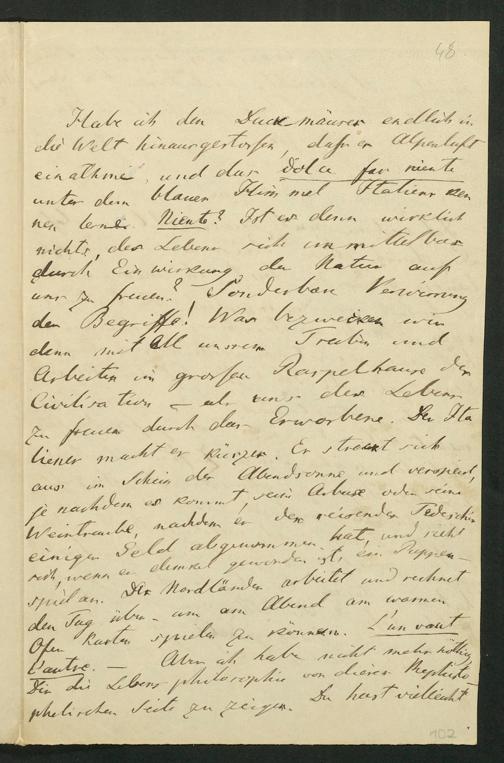 48
Habe ich den Duckmäuser endlich in
die Welt hinausgestossen, dass er Alpenluft
einathme, und das dolce far niente
unter dem blauen Himmel Italiens ken
nen lerne. Niente? Ist es denn wirklich
nichts, des Lebens sich unmittelbar
durch Einwirkung der Natur auf
uns zu freuen? Sonderbare Verwirrung
der Begriffe! Was bezwecken wir
denn mit All unserem Treiben und
Arbeiten im grossen Raspelhause der
Civilisation – als uns des Lebens
zu freuen durch das Erworbene. Der Ita
liener macht er kürzer. Er streckt sich
aus im Schein der Abendsonne und verspeist,
je nachdem es kommt, seine Arbuse oder seine
Weintraube, nachdem er den reisenden Tedeschi
einiges Geld abgenommen hat, und sieht
sich, wenn er dunkel geworden ist, ein Puppen-
spiel an. Der Nordländer arbeitet und rechnet
den Tag über – um am Abend am warmen
Ofen Karten spielen zu können. L'un vaut
l'autre. – Aber ich habe nicht mehr nöthig
Dir die Lebensphilosophie von dieser Mephisto-
phelischen Seite zu zeigen. Du hast vielleicht
102